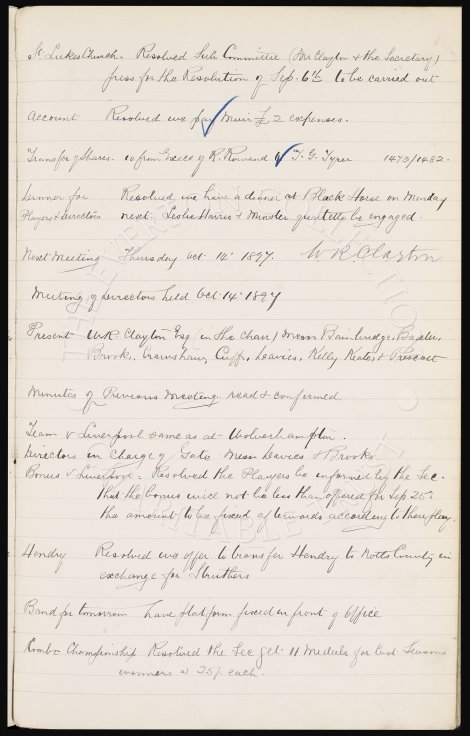 St. Lukes Church. Resolved Sub Committee (Mr Clayton & the Secretary)
press for the Resolution of Sep. 6th to be carried out
Account Resolved we pay Muir £2 expenses.
Transfer of Shares. 10 from Execs of R. Rowand to T. G. Tyrer 1473/1482.
Dinner for Resolved we have a dinner at Black Horse on Monday
Players & Directors next. Leslie Harris & Minster quintette be engaged.
Next Meeting Thursday Oct 14th 1897. W R Clayton
Meeting of Directors held Oct 14th 1897
Present W R Clayton Esq (in the Chair) Messrs Bainbridge, Baxter
Brooks, Crawshaw, Cuff, Davies, Kelly Keates & Prescott
Minutes of Previous Meeting. read & confirmed
Team v Liverpool same as at Wolverhampton
Directors in Charge of Gate Messrs Davies & Brooks.
Bonus v Liverpool. Resolved the Players be informed by the Sec.
that the bonus will not be less than offered for Sep 25th
the amount to be fixed afterwards according to their play.
Hendry Resolved we offer to transfer Hendry to Notts County in
exchange for Struthers
Band for tomorrow have platform fixed in front of Office
Combn Championship Resolved the Sec get 11 Medals for last Seasons
winners @ 25/. each.
THE EVERTON COLLECTION
CHARITABLE